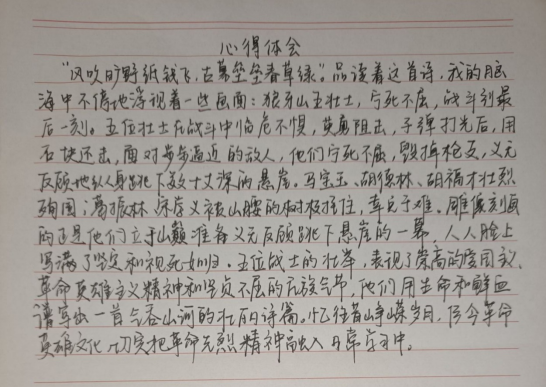 心得体会
"风吹旷野纸钱飞，古墓垒垒春草绿"。品读着这首诗，我的脑
海中不停地浮现着一些画面：狼牙山五壮士，宁死不屈，战斗到最
后一刻。五位壮士在战斗中临危不惧，英勇阻击，子弹打光后，用
石块还击，面对步步逼近的敌人，他们宁死不屈，毁掉枪支，义无
反顾地纵身跳下数十丈深的悬崖。马宝玉、胡德林、胡福才壮烈
殉国；葛振林、宋学义被山腰的树枝挂住，幸免于难。雕像刻画
的正是他们立于山巅准备义无反顾跳下悬崖的一幕，人人脸上
写满了坚定和视死如归。五位战士的壮举，表现了崇高的爱国主义、
革命英雄主义精神和坚贞不屈的民族气节，他们用生命和鲜血
谱写出一首气吞山河的壮丽诗篇。忆往昔峥嵘岁月，传今革命
英雄文化，切实把革命先烈精神融入日常学习中。